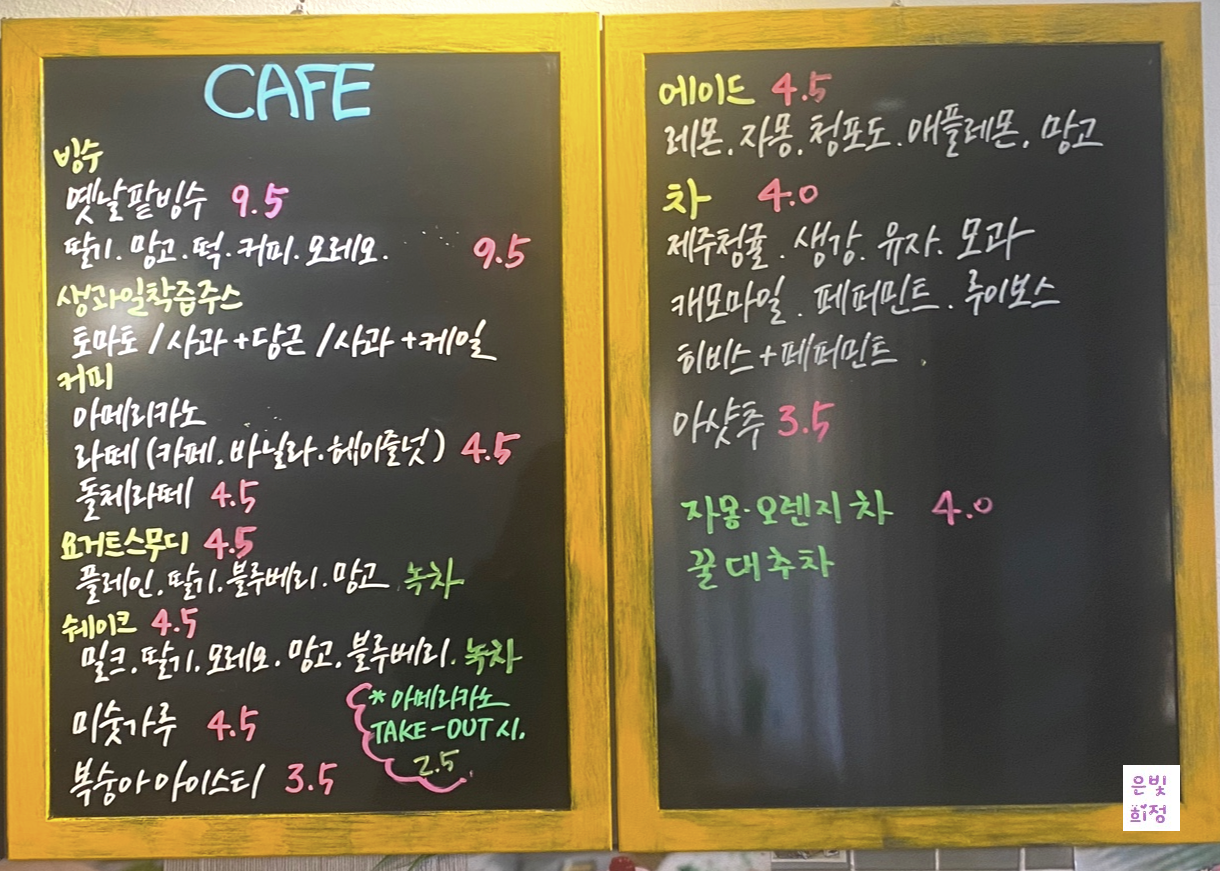 CAFE
빙수
옛날팥빙수 9.5
딸기. 망고. 떡. 커피. 오레오. 9.5
생과일착즙주스
토마토 / 사과 + 당근 / 사과 + 케일
커피
아메리카노
라떼 (카페. 바닐라. 헤이즐넛) 4.5
돌체라떼 4.5
요거트스무디 4.5
플레인. 딸기. 블루베리. 망고 녹차
쉐이크 4.5
밀크. 딸기. 오레오. 망고. 블루베리. 녹차
미숫가루 4.5
복숭아 아이스티 3.5
* 아메리카노
TAKE-OUT 시.
2.5
에이드 4.5
레몬. 자몽. 청포도. 애플레몬. 망고
차 4.0
제주청귤. 생강. 유자. 모과
캐모마일. 페퍼민트. 루이보스
히비스+페퍼민트
아샷추 3.5
자몽·오렌지 차 4.0
꿀대추차
은빛
희정